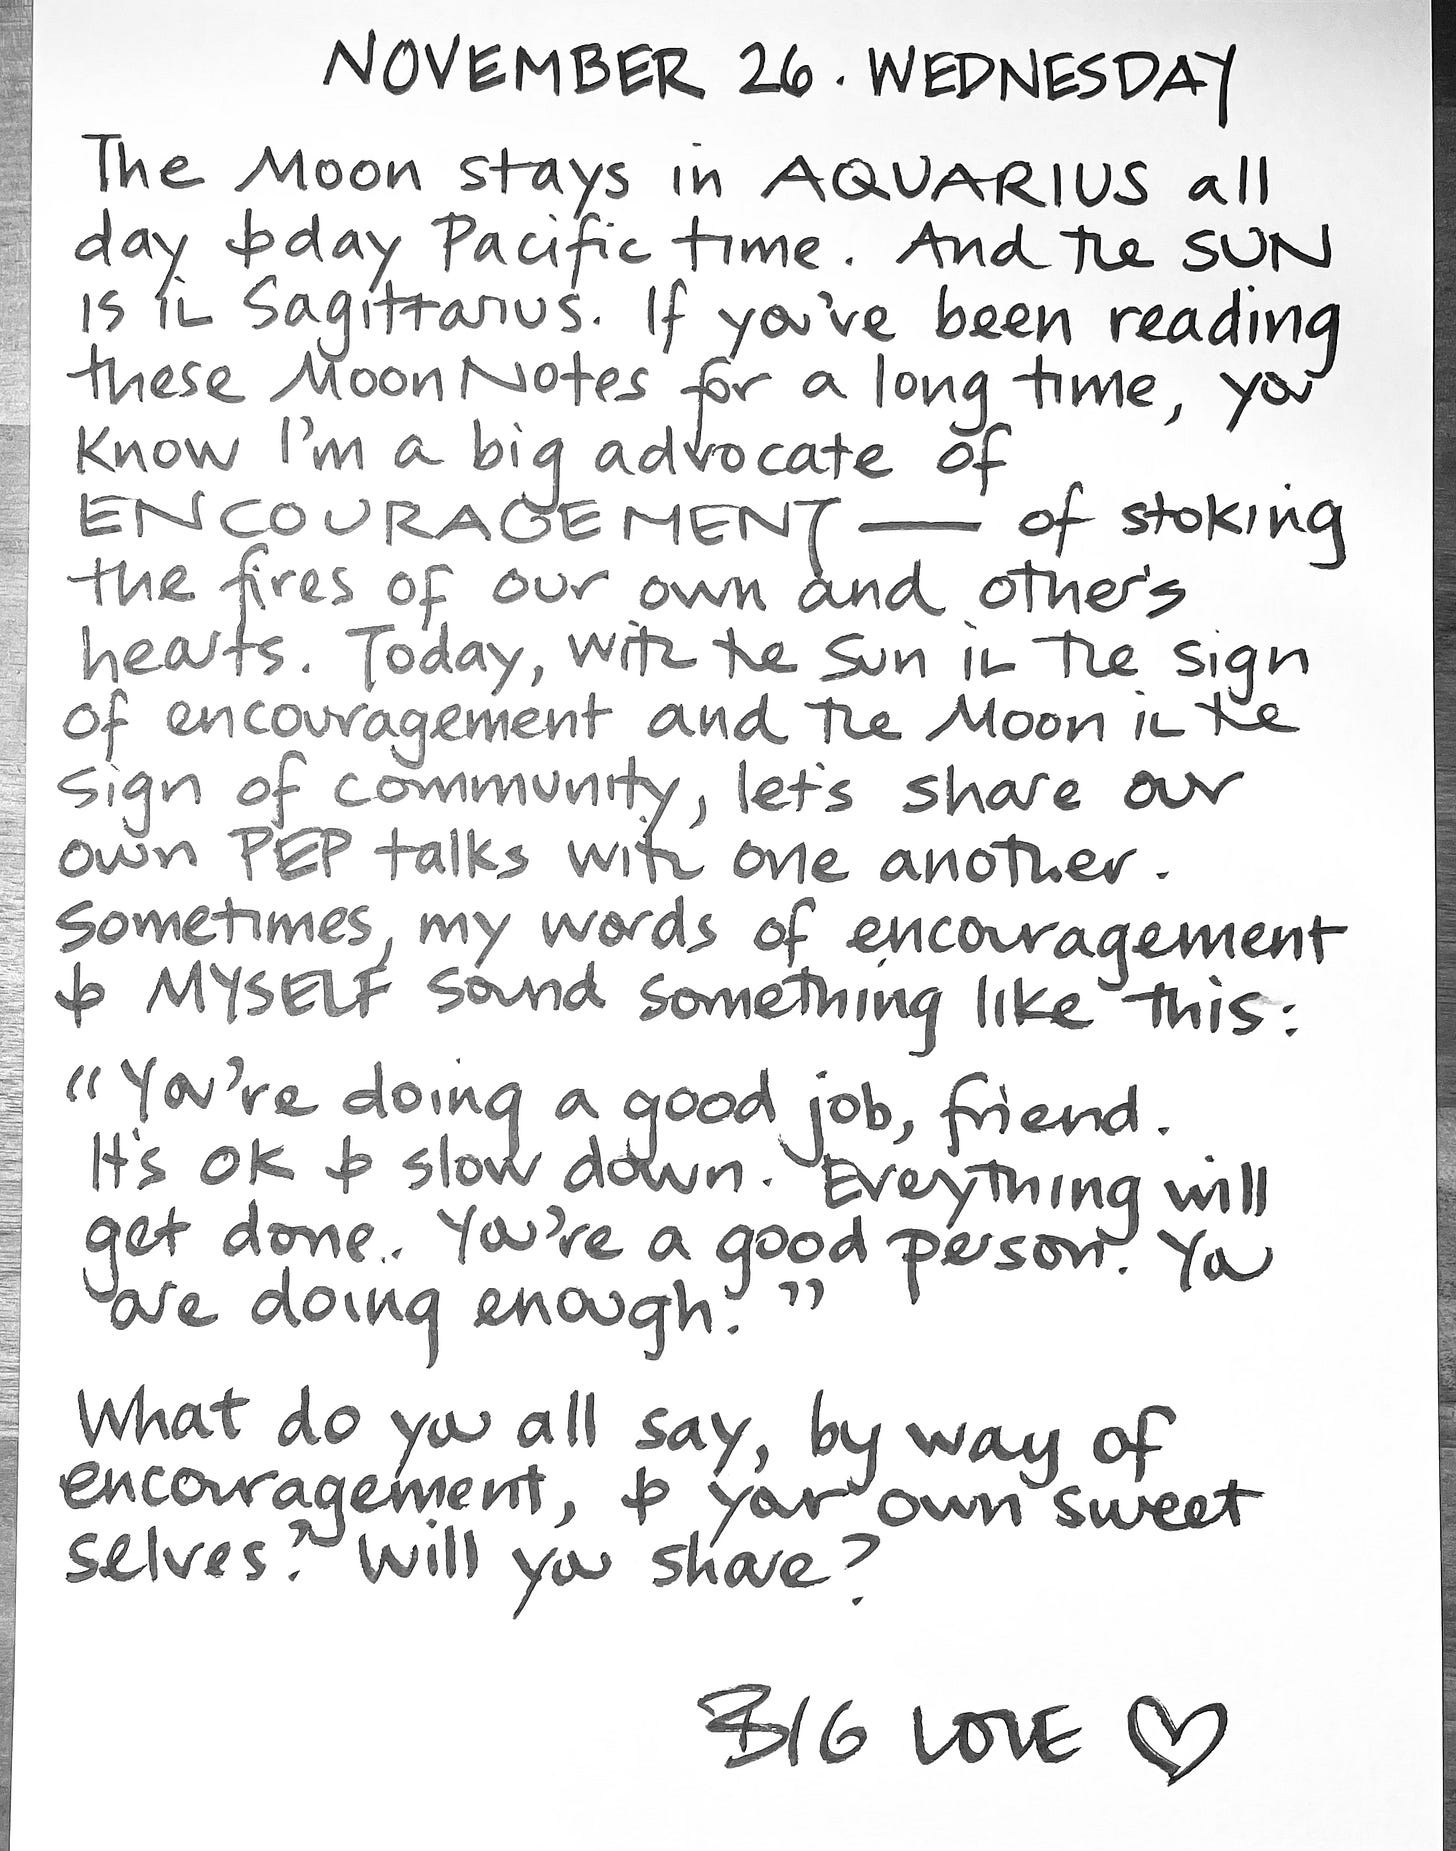 NOVEMBER 26 · WEDNESDAY
The Moon stays in AQUARIUS all
day today Pacific time. And the SUN
is in Sagittarius. If you've been reading
these MoonNotes for a long time, you
know I'm a big advocate of
ENCOURAGEMENT — of stoking
the fires of our own and other's
hearts. Today, with the Sun in the sign
of encouragement and the Moon in the
sign of community, let's share our
own PEP talks with one another.
Sometimes, my words of encouragement
to MYSELF sound something like this:
"You're doing a good job, friend.
It's OK to slow down. Everything will
get done. You're a good person. You
are doing enough."
What do you all say, by way of
encouragement, to your own sweet
selves? Will you share?
BIG LOVE ♡